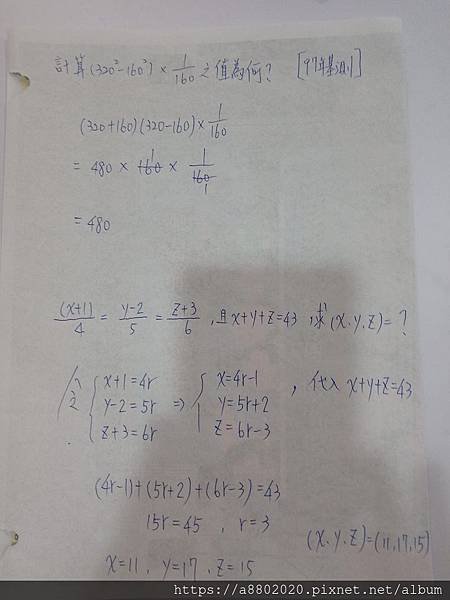 計算(320²-160²)×1/160之值為何? [97年基測]
(320+160)(320-160)×1/160
=480×160×1/160
1 1
=480
(x+1)/4=y-2/5=z+3/6,且x+y+z=43,求(x.y.z)=?
令{x+1=4r y-2=5r z+3=6r ⇒ {x=4r-1 y=5r+2 z=6r-3 ,代入x+y+z=43
(4r-1)+(5r+2)+(6r-3)=43
15r=45,r=3
x=11,y=17,z=15
(x.y.z)=(11,17,15)
https://a8802020.pixnet.net/album